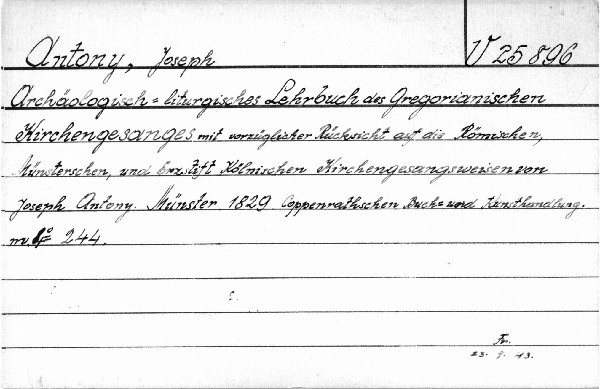 Antony, Joseph
V 25 896
Archäologisch = liturgisches Lehrbuch des Gregorianischen
Kirchengesanges mit vorzüglicher Rücksicht auf die Römischen,
Münsterschen, und Erzstift Kölnischen Kirchengesangsweisen von
Joseph Antony. Münster 1829 Coppenrathschen Buch= und Kunsthandlung.
244.
Fr.
23. 9. 43.